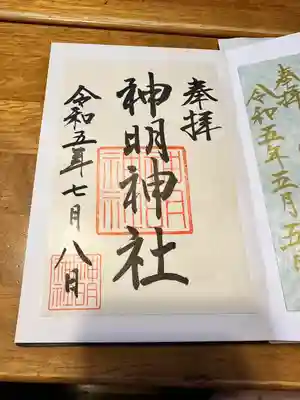 奉拝
神明神社
令和五年七月八日
奉拝
令和五年五月五日